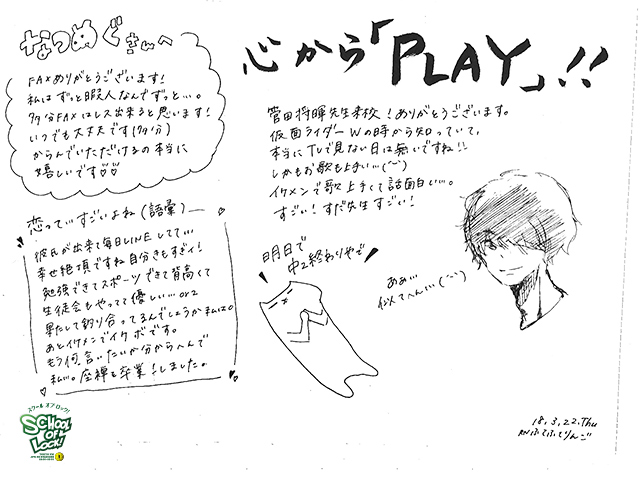 なつめぐさんへ
FAXありがとうございます!
私はずっと暇人なんでずっと…。
多分FAXはレス出来ると思います!
いつでも大丈夫です(多分)
からんでいただけるの本当に
嬉しいです♡♡
恋ってすごいよね(語彙)
彼氏が出来て毎日LINEしてて…
幸せ絶頂ですね自分きもすぎィ!
勉強できてスポーツできて背高くて
生徒会もやってて優しい…orz
果たして釣り合ってるんでしょうか私は。
あとイケメンでイケボです。
もう何言いたいか分からへんで
私い。座禅を卒業!しました。
心から「PLAY」!!
菅田将暉先生来校!ありがとうございます。
仮面ライダーWの時から知っていて、
本当にTVで見ない日は無いですね!!
しかもお歌も上手い…
イケメンで歌上手くて話面白い…。
すごい!すだ先生すごい!
明日で
中2終わりやで
ああ…
似てへん…
スクール オブ ロック!
SCHOOL
OF
LOCK!
18.3.22.Thu
RNふてふてりんご